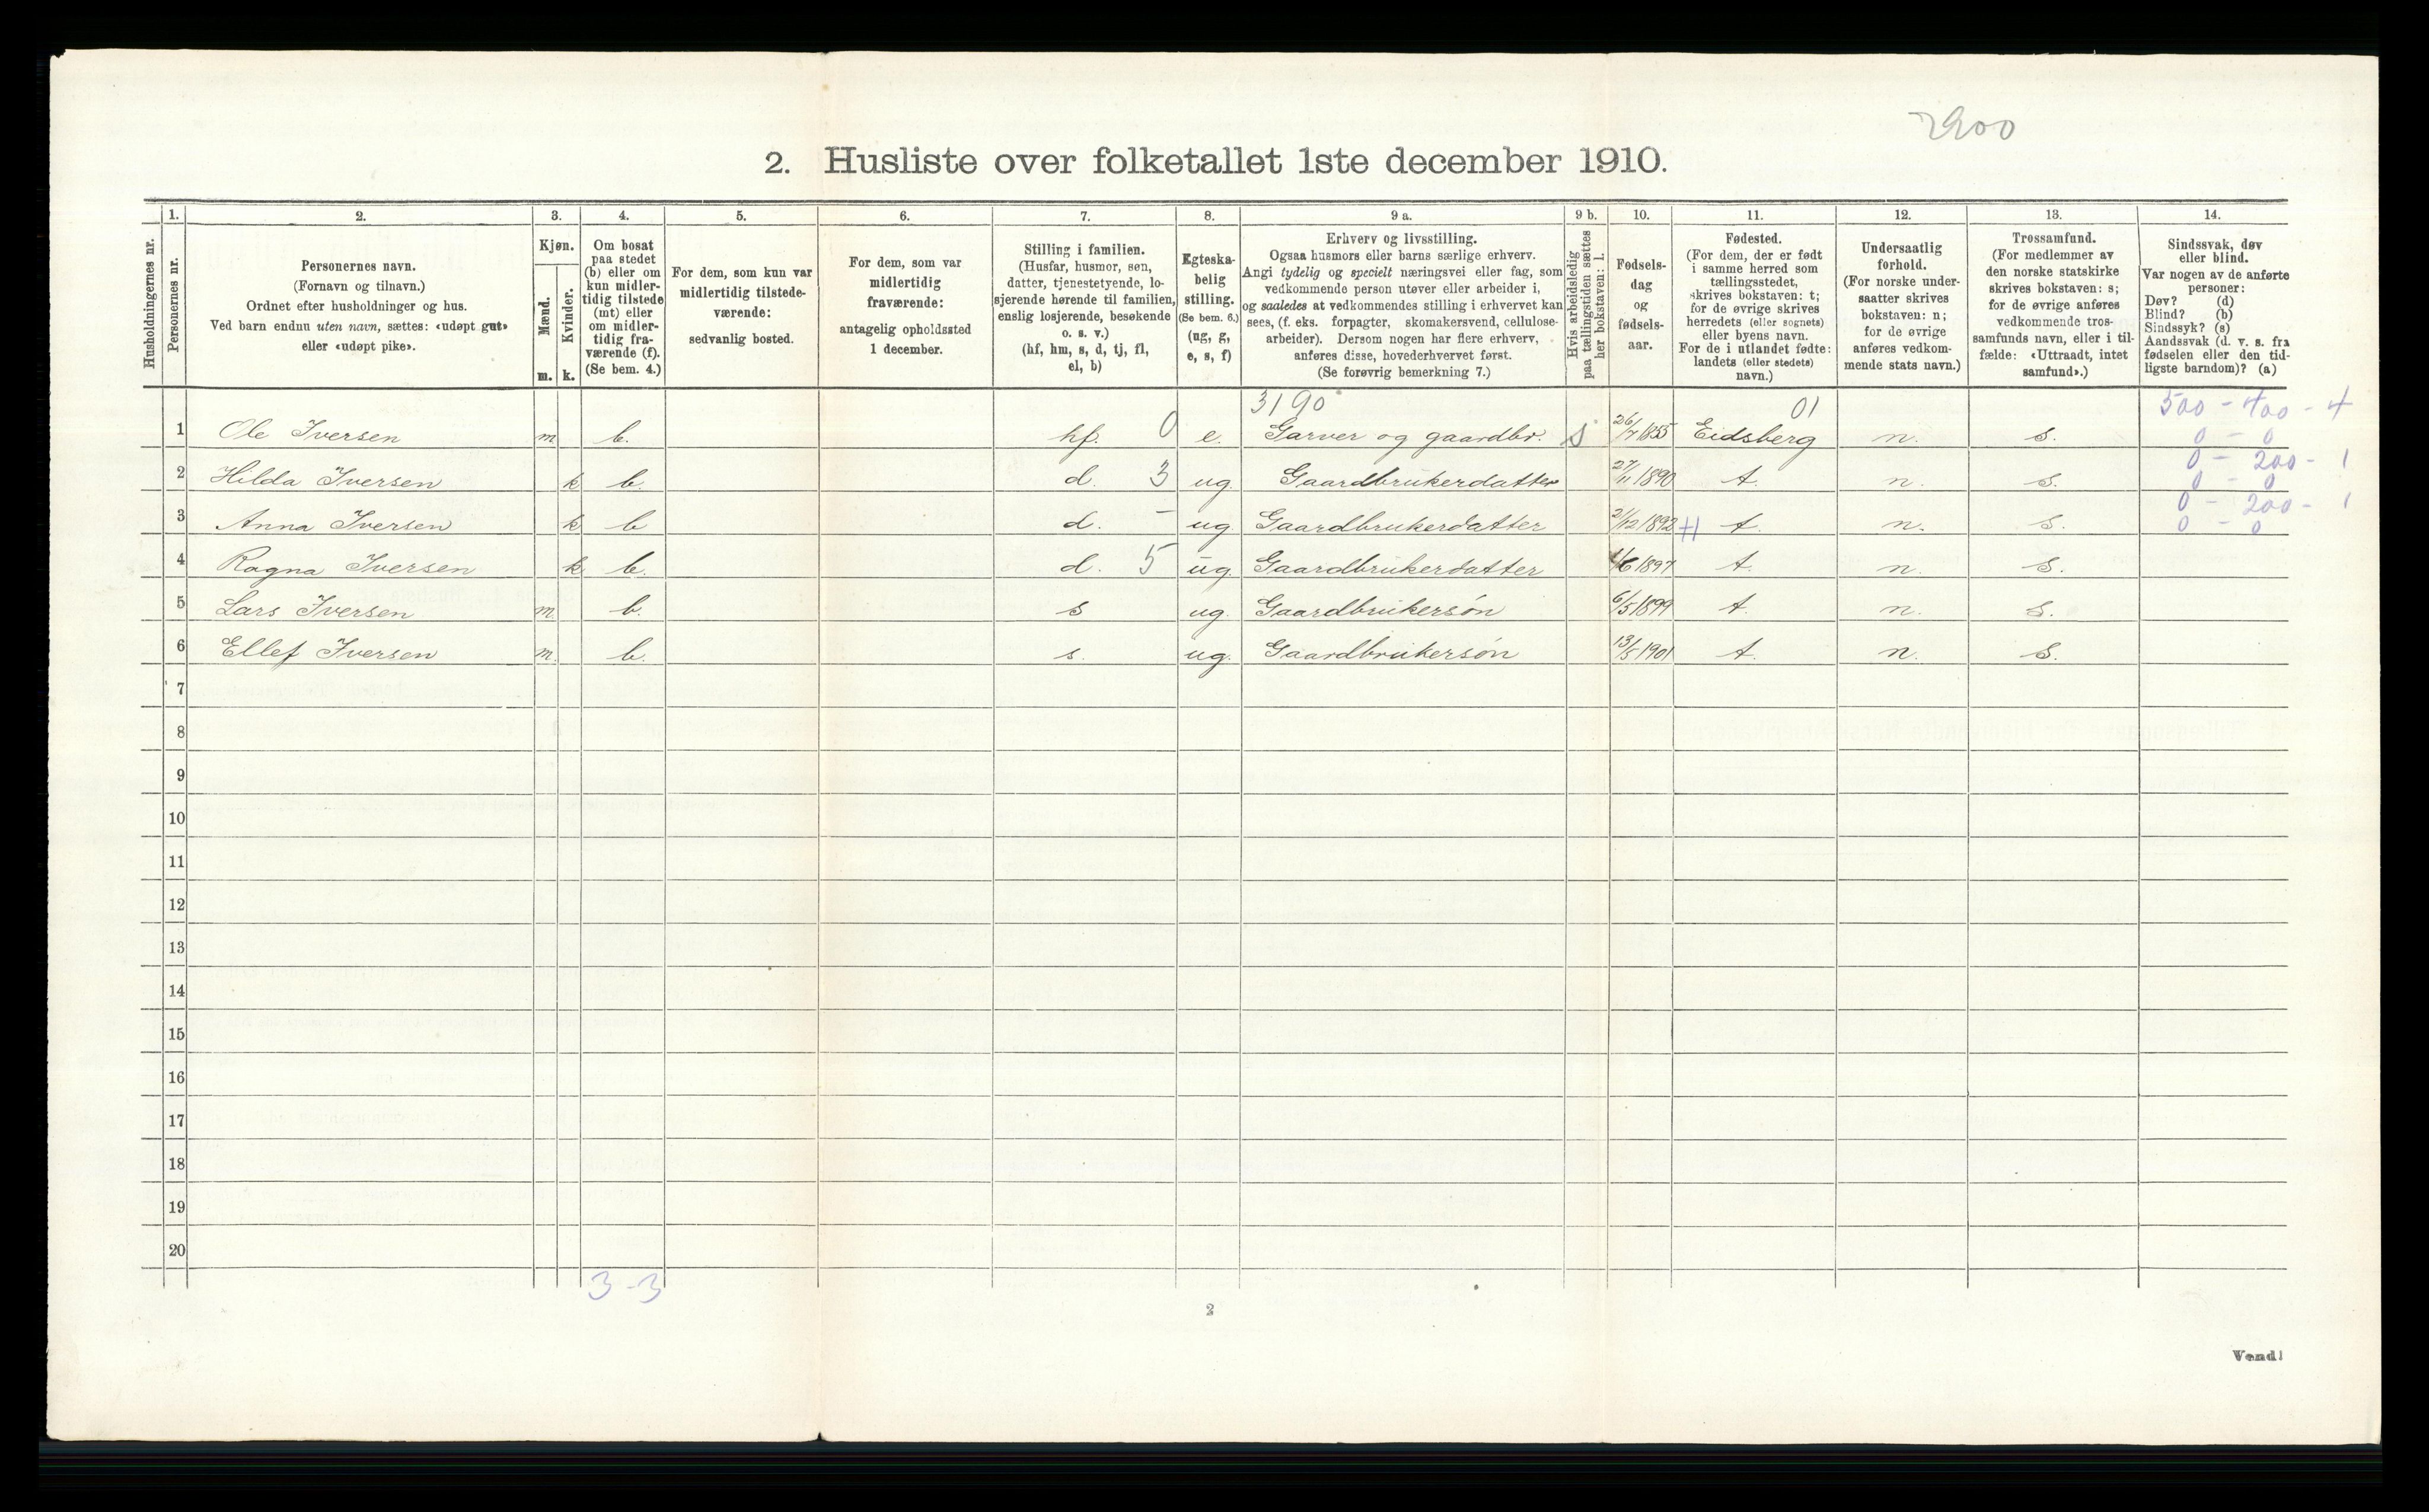 2900
2. Husliste over folketallet 1ste december 1910.
Husholdningernes nr.
1. Personernes nr.
2. Personernes navn.
(Fornavn og tilnavn.)
Ordnet efter husholdninger og hus.
Ved barn endnu uten navn, sættes: «udøpt gut»
eller «udøpt pike».
3. Kjøn.
Mænd. m.
Kvinder. k.
4. Om bosat
paa stedet
(b) eller om
kun midler-
tidig tilstede
(mt) eller
om midler-
tidig fra-
værende (f).
(Se bem. 4.)
5. For dem, som kun var
midlertidig tilstede-
værende:
sedvanlig bosted.
6. For dem, som var
midlertidig
fraværende:
antagelig opholdssted
1 december.
7. Stilling i familien.
(Husfar, husmor, søn,
datter, tjenestetyende, lo-
sjerende hørende til familien,
enslig losjerende, besøkende
o. s. v.)
(hf, hm, s, d, tj, fl,
el, b)
8. Egteska-
belig
stilling.
(Se bem. 6.)
(ug, g,
e, s, f)
9 a. Erhverv og livsstilling.
Ogsaa husmors eller barns særlige erhverv.
Angi tydelig og specielt næringsvei eller fag, som
vedkommende person utøver eller arbeider i,
og saaledes at vedkommendes stilling i erhvervet kan
sees, (f. eks. forpagter, skomakersvend, cellulose-
arbeider). Dersom nogen har flere erhverv,
anføres disse, hovederhvervet først.
(Se forøvrig bemerkning 7.)
9 b. Hvis arbeidsledig
paa tællingstiden sættes
her bokstaven: l.
10. Fødsels-
dag
og
fødsels-
aar.
11. Fødested.
(For dem, der er født
i samme herred som
tællingsstedet,
skrives bokstaven: t;
for de øvrige skrives
herredets (eller sognets)
eller byens navn.
For de i utlandet fødte:
landets (eller stedets)
navn.)
12. Undersaatlig
forhold.
(For norske under-
saatter skrives
bokstaven: n;
for de øvrige
anføres vedkom-
mende stats navn.)
13. Trossamfund.
(For medlemmer av
den norske statskirke
skrives bokstaven: s;
for de øvrige anføres
vedkommende tros-
samfunds navn, eller i til-
fælde: «Uttraadt, intet
samfund».)
14. Sindssvak, døv
eller blind.
Var nogen av de anførte
personer:
Døv? (d)
Blind? (b)
Sindssyk? (s)
Aandssvak (d. v. s. fra
fødselen eller den tid-
ligste barndom)? (a)
3190 01 500 - 400 - 4
1 Ole Iversen m b. hf. 0 e. Garver og gaardbr. s 26/7 1855 Eidsberg n. s. 0 - 0
0 - 200 - 1
2 Hilda Iversen k b. d. 3 ug. Gaardbrukerdatter 27/11 1890 t. n. s. 0 - 0
0 - 200 - 1
3 Anna Iversen k b d. - ug. Gaardbrukerdatter 2/12 1892 t. n. s. 0 - 0
4 Ragna Iversen k b. d. 5 ug. Gaardbrukerdatter 1897 t. n. s.
5 Lars Iversen m. b. s ug. Gaardbrukersøn 6/5 1899 t. n. s.
6 Ellef Iversen m. b. s. ug. Gaardbrukersøn 13/5 1901 t. n. s.
7
8
9
10
11
12
13
14
15
16
17
18
19
20
3 - 3
2
Vend!